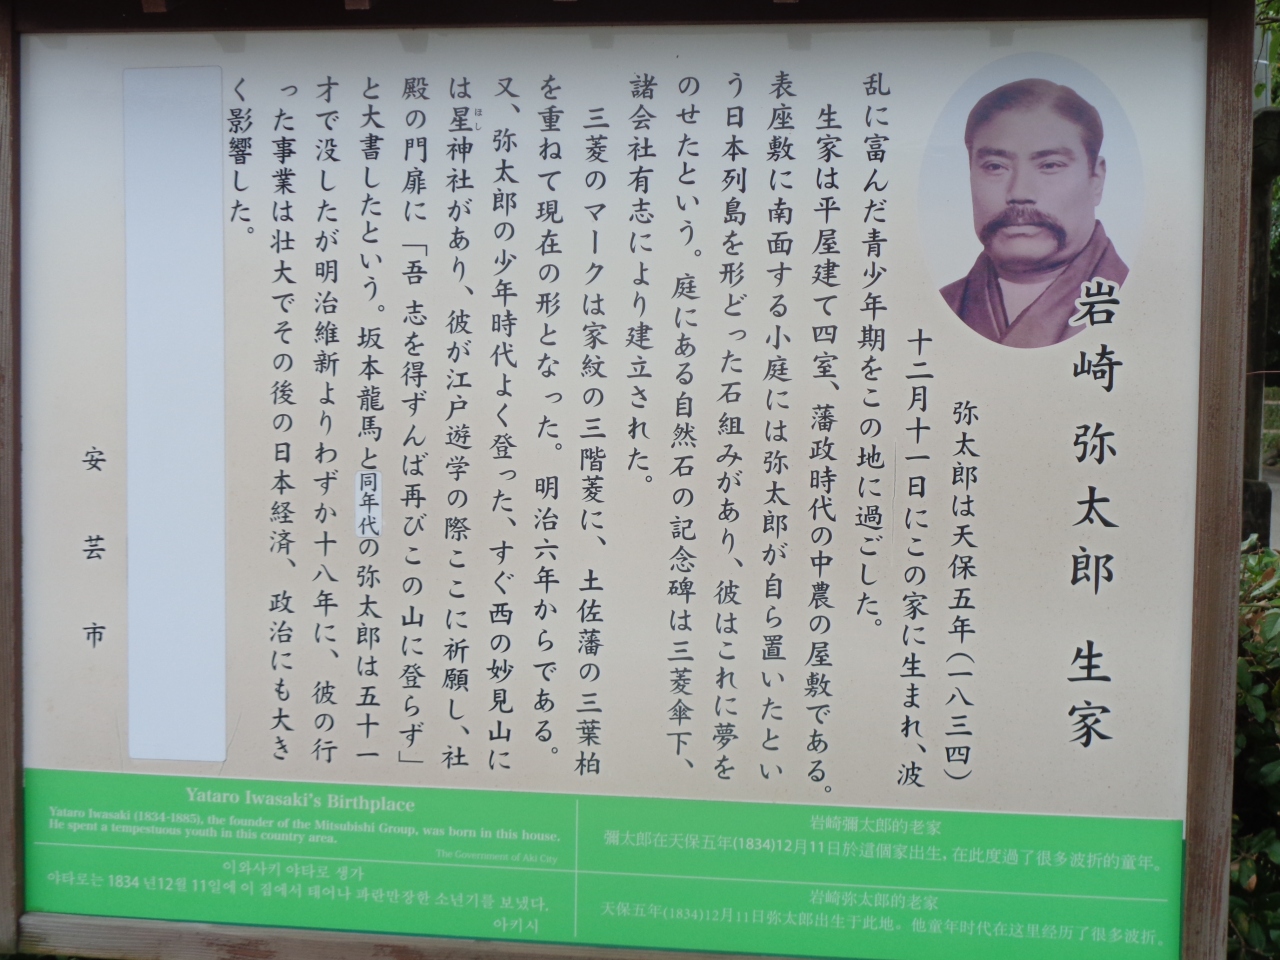 岩崎 弥太郎 生家
弥太郎は天保五年(一八三四)
十二月十一日にこの家に生まれ、波
乱に富んだ青少年期をこの地に過ごした。
生家は平屋建て四室、藩政時代の中農の屋敷である。
表座敷に南面する小庭には弥太郎が自ら置いたとい
う日本列島を形どった石組みがあり、彼はこれに夢を
のせたという。庭にある自然石の記念碑は三菱傘下、
諸会社有志により建立された。
三菱のマークは家紋の三階菱に、土佐藩の三葉柏
を重ねて現在の形となった。明治六年からである。
又、弥太郎の少年時代よく登った、すぐ西の妙見山に
は星神社があり、彼が江戸遊学の際ここに祈願し、社
ほし
殿の門扉に「吾 志を得ずんば再びこの山に登らず」
と大書したという。坂本龍馬と同年代の弥太郎は五十一
才で没したが明治維新よりわずか十八年に、彼の行
った事業は壮大でその後の日本経済、政治にも大き
く影響した。
安芸市
Yataro Iwasaki's Birthplace
Yataro Iwasaki (1834-1885), the founder of the Mitsubishi Group, was born in this house.
He spent a tempestuous youth in this country area.
The Government of Aki City
이와사키 야타로 생가
야타로는 1834 년12월 11일에 이 집에서 태어나 파란만장한 소년기를 보냈다.
아키시
岩崎彌太郎的老家
彌太郎在天保五年(1834)12月11日於這個家出生，在此度過了很多波折的童年。
岩崎弥太郎的老家
天保五年(1834)12月11日弥太郎出生于此地。他童年时代在这里经历了很多波折。